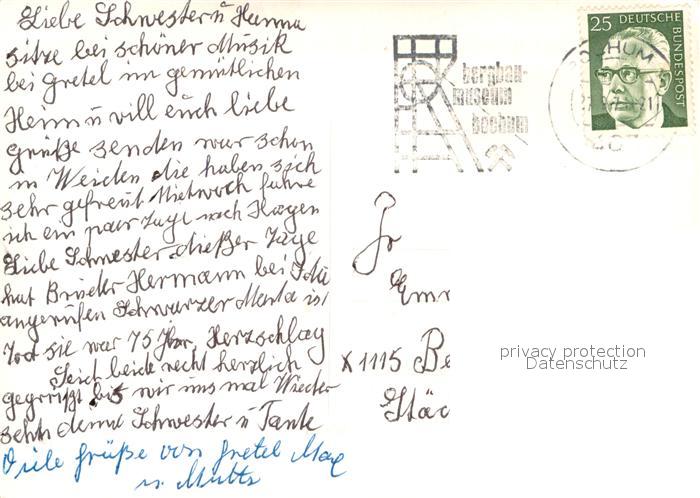 Liebe Schwester u Hanna
sitze bei schöner Musik
bei Gretel im gemütlichen
Heim u will euch liebe
grüße senden war schon
in Weiden die haben sich
sehr gefreut Mietwoch fahre
ich ein paar Tage nach Hagen
Liebe Schwester dießer Tage
hat Bruder Hermann bei
angerufen Schwarzer Marta ist
Tod sie war 75 Jhr, Herzschlag
Seid beide recht herzlich
gegrüßt bis wir uns mal Wieder
sehn deine Schwester u Tante
Viele grüße von Gretel Max
u. Mutti
25 DEUTSCHE
BUNDESPOST
bergbau-
museum
bochum
BOCHUM
463
Fr
Emr
X 1115 Be
privacy protection
Datenschutz